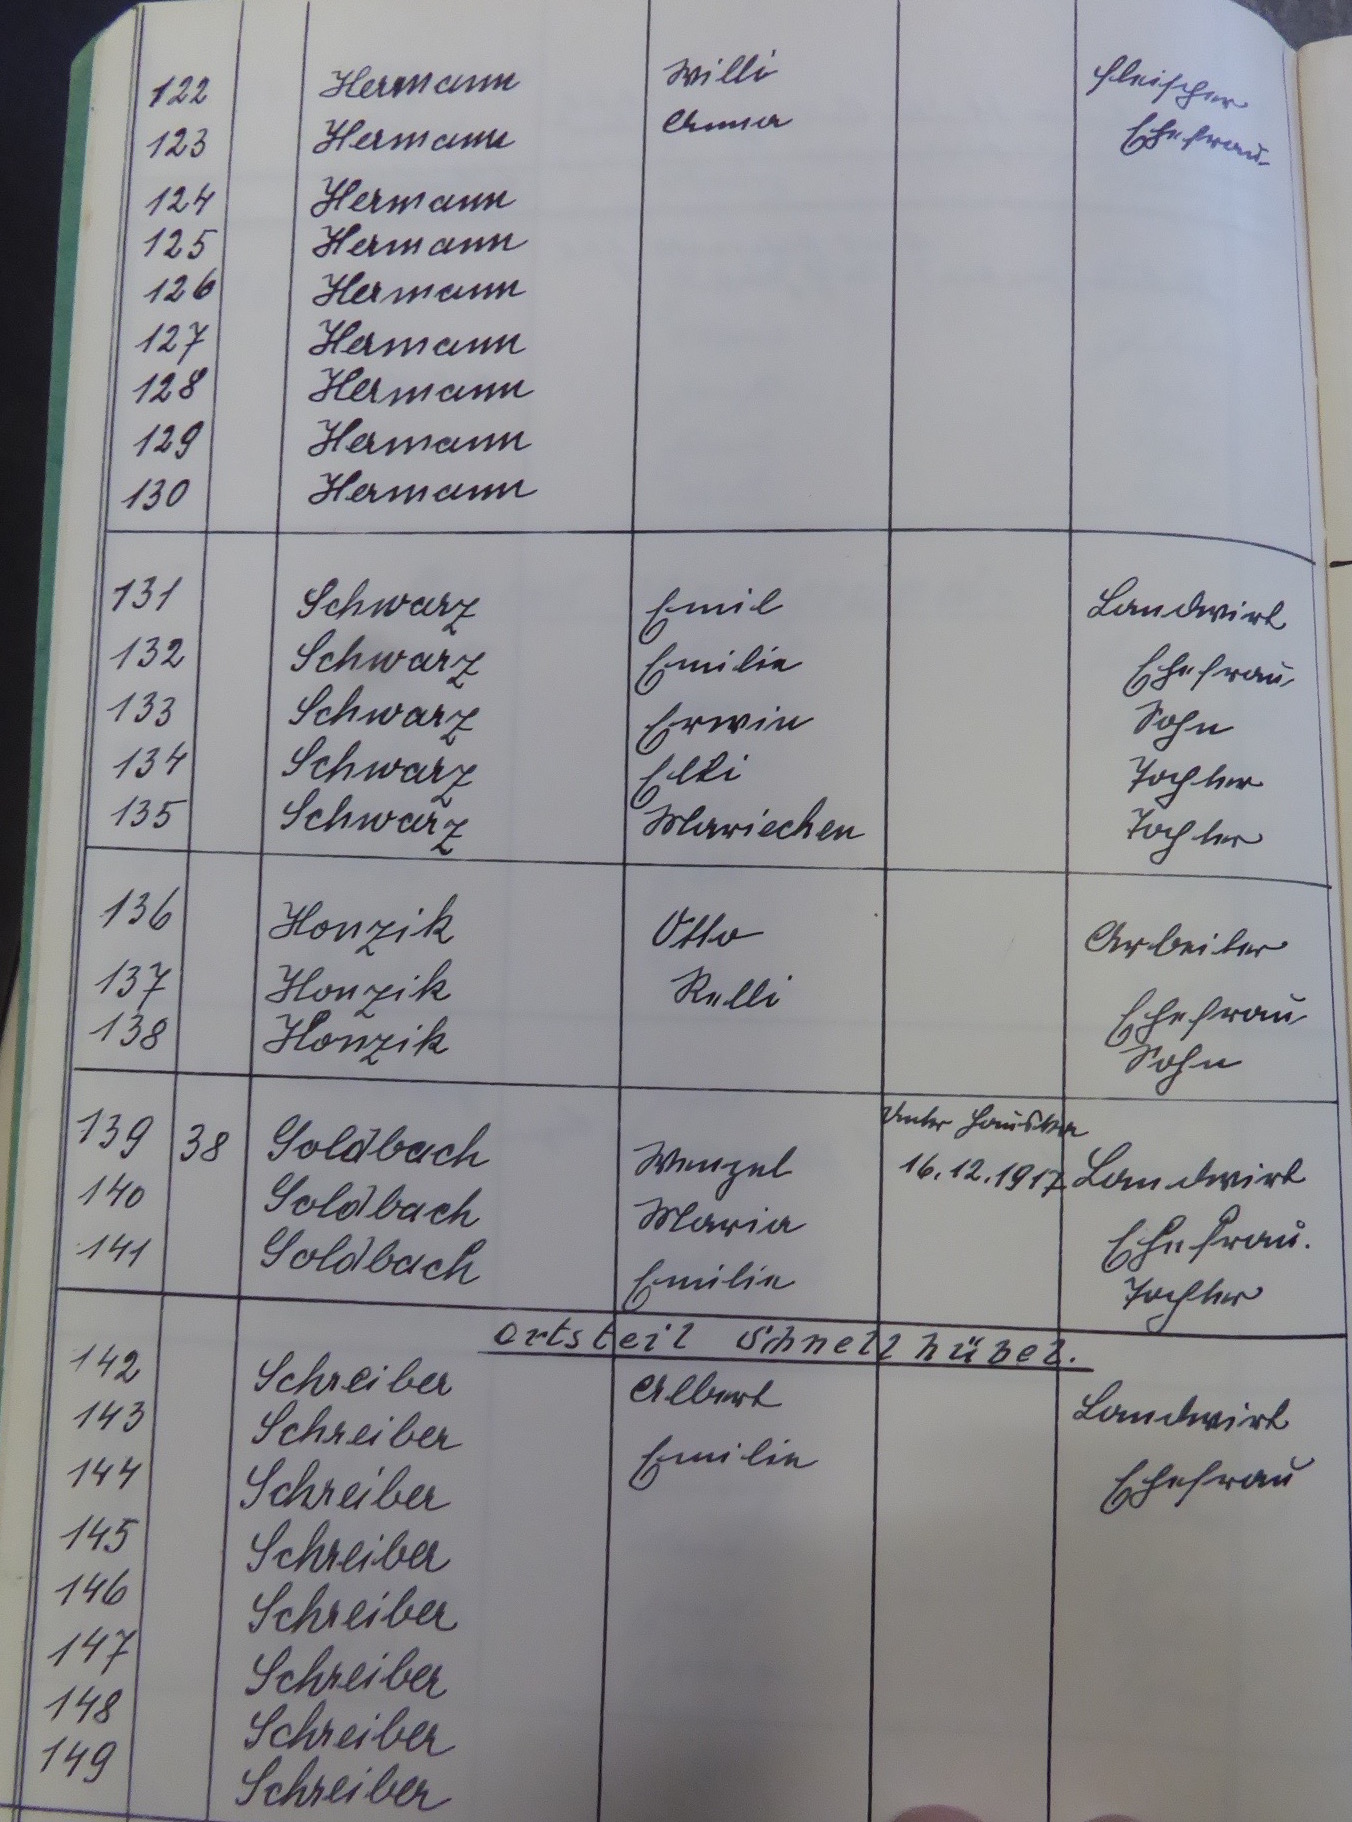 122 Hermann Willi Fleischer
123 Hermann Anna Ehefrau
124 Hermann
125 Hermann
126 Hermann
127 Hermann
128 Hermann
129 Hermann
130 Hermann
131 Schwarz Emil Landwirt
132 Schwarz Emilie Ehefrau
133 Schwarz Erwin Sohn
134 Schwarz Elli Tochter
135 Schwarz Mariechen Tochter
136 Honzik Otto Arbeiter
137 Honzik Nelli Ehefrau
138 Honzik Sohn
Unter
139 38 Goldbach Wenzel 16.12.1917 Landwirt
140 Goldbach Maria Ehefrau.
141 Goldbach Emilie Tochter
Ortsteil Schnellhübel.
142 Schreiber Albert Landwirt
143 Schreiber Emilie Ehefrau
144 Schreiber
145 Schreiber
146 Schreiber
147 Schreiber
148 Schreiber
149 Schreiber